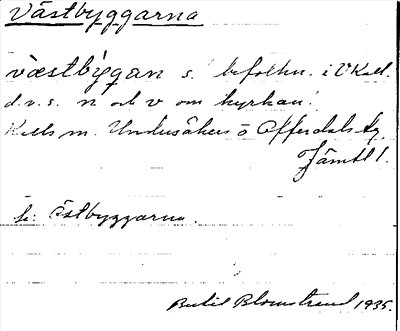 Västbyggarna
væstbýgan s. befolkn. i V Kall.
d.v.s. n och v om kyrkan.
Kalls m. Undersåkers o Offerdals tg
Jämtl.
Se: Östbyggarna.
Bertil Blomstrand 1935.